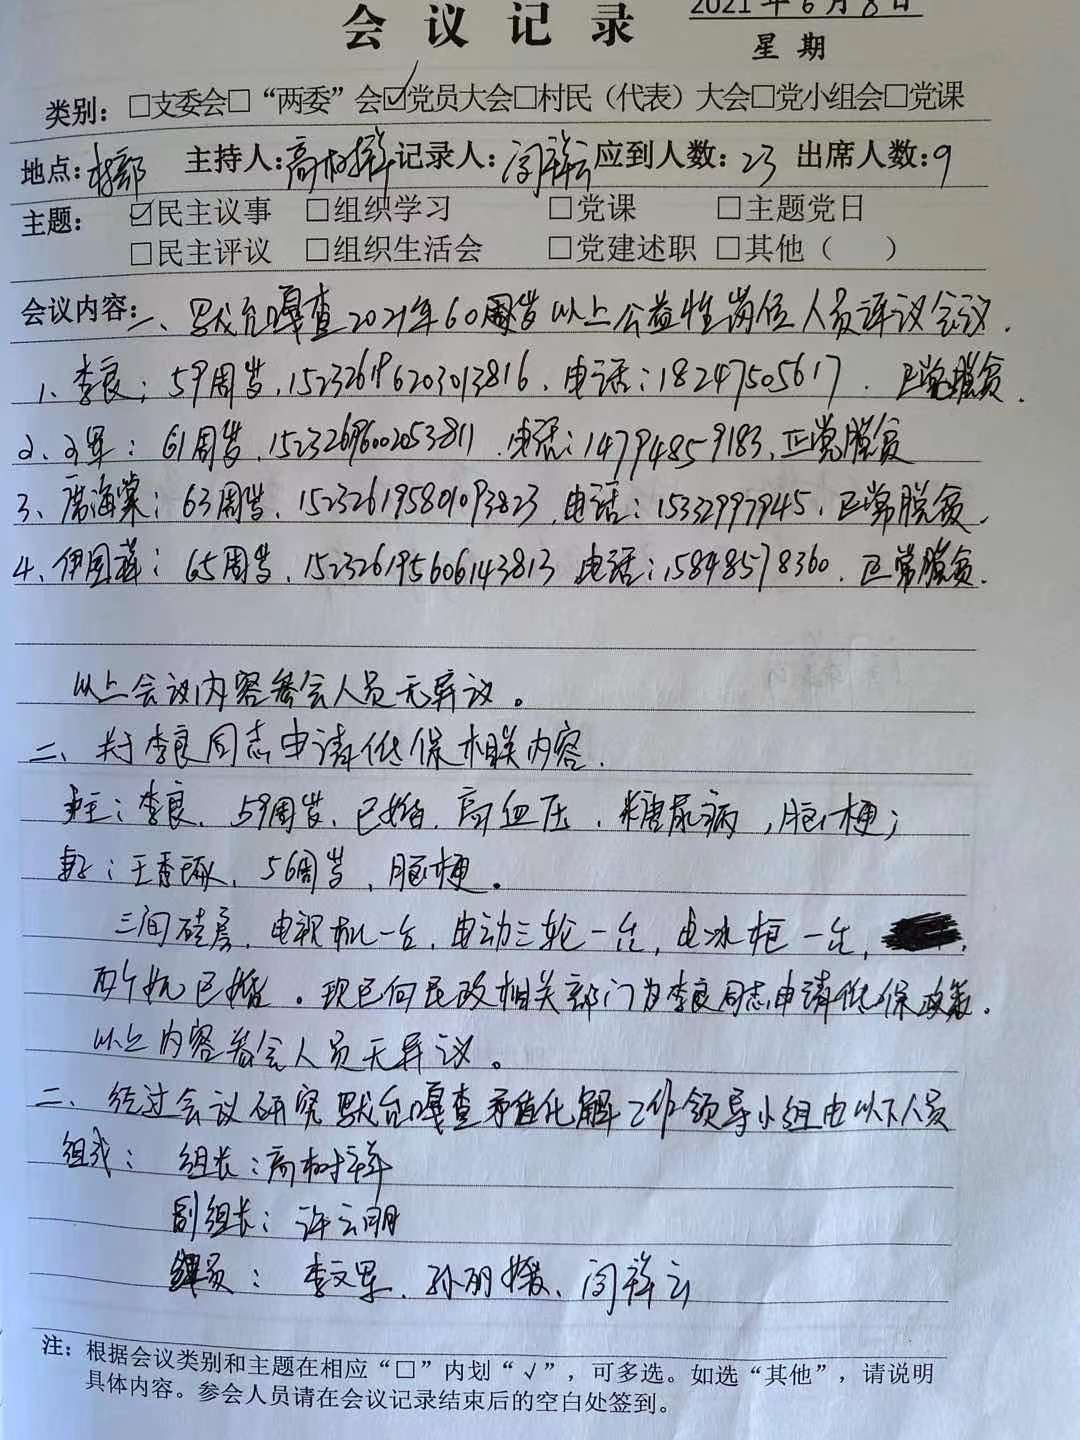 会议记录 2021年6月8日
星期
类别：□支委会□“两委”会☑党员大会□村民（代表）大会□党小组会□党课
地点：村部 主持人：高树祥 记录人：闫祥云 应到人数：23 出席人数：9
主题：☑民主议事 □组织学习 □党课 □主题党日
□民主评议 □组织生活会 □党建述职 □其他（ ）
会议内容：一、默台嘎查2021年60周岁以上公益性岗位人员评议会议.
1、李良：59周岁，152326196203013816、电话：18247505617. 正常脱贫.
2、 军：61周岁，电话：14794859183、正常脱贫
3、席海棠：63周岁，152326195801093823，电话：15332997945，正常脱贫.
4、伊国 ：65周岁，152326195606143813 电话：15848578360. 正常脱贫.
以上会议内容参会人员无异议。
二、关于李良同志申请低保相关内容.
户主：李良、59周岁、已婚、高血压、糖尿病，脑梗；
妻子：王秀 、56周岁、脑梗。
三间砖房，电视机一台，电动三轮一台，电冰柜一台，
两个 已婚。现已向民政相关部门为李良同志申请低保政策。
以上内容参会人员无异议。
二、经过会议研究默台嘎查矛盾化解工作领导小组由以下人员
组成：组长：高树祥
副组长：许云朋
组员：李文军、孙丽媛、闫祥云
注：根据会议类别和主题在相应“□”内划“√”，可多选。如选“其他”，请说明
具体内容。参会人员请在会议记录结束后的空白处签到。